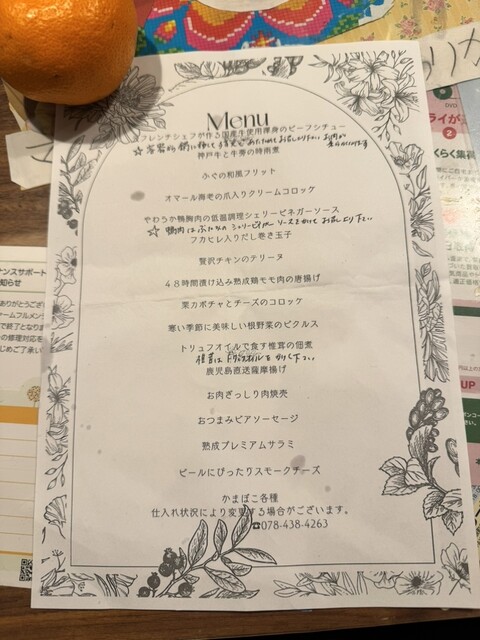 Menu
フレンチシェフが作る国産牛使用渾身のビーフシチュー
神戸牛と牛蒡の時雨煮
ふぐの和風フリット
オマール海老の爪入りクリームコロッケ
やわらか鴨胸肉の低温調理シェリービネガーソース
☆ 鴨肉は シェリービネガーソースをかけてお召し上り下さい
フカヒレ入りだし巻き玉子
贅沢チキンのテリーヌ
48時間漬け込み熟成鶏モモ肉の唐揚げ
栗カボチャとチーズのコロッケ
寒い季節に美味しい根野菜のピクルス
トリュフオイルで食す椎茸の佃煮
椎茸は トリュフオイルをかけて下さい
鹿児島直送薩摩揚げ
お肉ぎっしり肉焼売
おつまみビアソーセージ
熟成プレミアムサラミ
ビールにぴったりスモークチーズ
かまぼこ各種
仕入れ状況により変更する場合がございます。
☎078-438-4263
ナンスサポート
お知らせ
ありがとうござい
で終了となりま
の修理対応を
じめご了承い
DVD
ライが
くらく集荷
UP